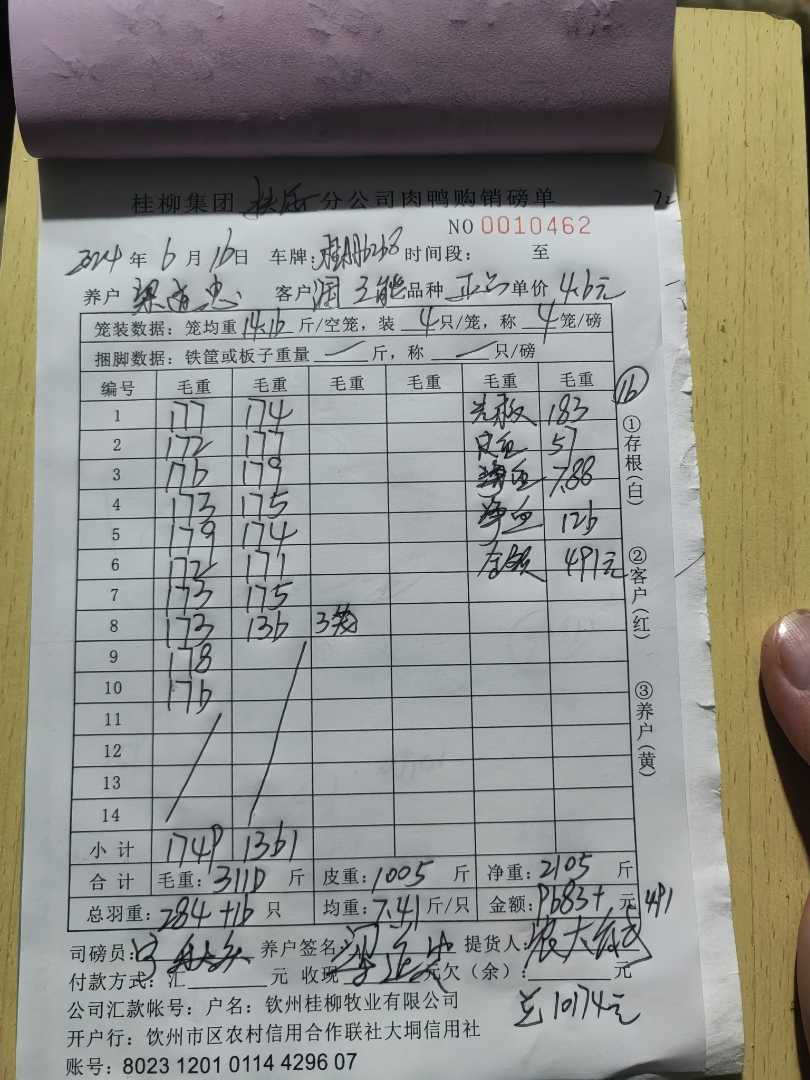 桂柳集团 扶绥 分公司肉鸭购销磅单
NO 0010462
2024 年 6 月 16 日 车牌: 时间段: 至
养户 梁 忠 客户 品种 正品 单价 4.6元
笼装数据: 笼均重 14.16 斤/空笼, 装 4 只/笼, 称 4 笼/磅
捆脚数据: 铁筐或板子重量 斤, 称 只/磅
编号 毛重 毛重 毛重 毛重 毛重 毛重 16
1 177 174 183
2 172 177 皮重 57
3 176 179 7.88
4 173 175 净重 126
5 179 174 金额 491元
6 172 171
7 173 175
8 173 136 3笼
9 178
10 176
11
12
13
14
小计 1749 1361
合计 毛重: 3110 斤 皮重: 1005 斤 净重: 2105 斤
总羽重: 284+16 只 均重: 7.41 斤/只 金额: 9683+ 元 491
司磅员: 养户签名: 提货人:
付款方式: 汇 元 收现 元欠(余): 元
公司汇款帐号: 户名: 钦州桂柳牧业有限公司
总10174元
开户行: 钦州市区农村信用合作联社大垌信用社
账号: 8023 1201 0114 4296 07
①存根(白)
②客户(红)
③养户(黄)